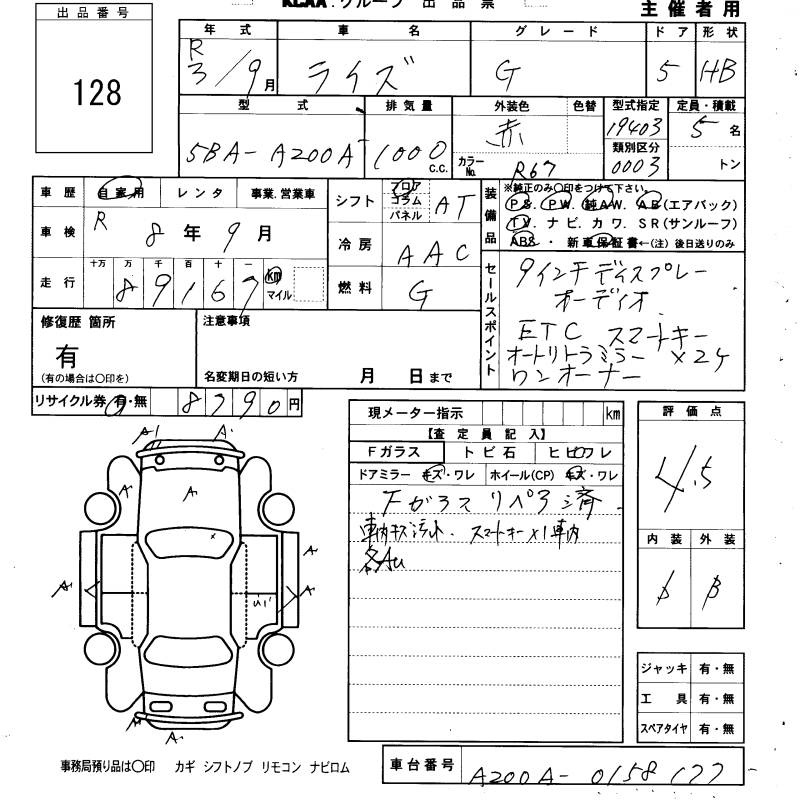 KCAA.グループ 出品票
主催者用
出品番号
128
年式 車名 グレード ドア 形状
R3/9月 ライズ G 5 HB
型式 排気量 外装色 色替 型式指定 定員・積載
5BA-A200A 1000 C.C. 赤 19403 5名
カラーNo. R67 類別区分 0003 トン
車歴 自家用 レンタ 事業.営業車
車検 R 8年9月
走行 十万 万 千 百 十 一
89167 km マイル
シフト フロア コラム パネル AT
冷房 AAC
燃料 G
装備品 ※純正のみ○印をつけて下さい。
PS. PW. 純AW. AB(エアバック)
TV. ナビ. カワ. SR(サンルーフ)
ABS・新車保証書←(注)後日送りのみ
セールスポイント
9インチディスプレー
オーディオ
ETC スマートキー
オートリトラミラー ×2ケ
ワンオーナー
修復歴 箇所
有
(有の場合は○印を)
注意事項
名変期日の短い方 月 日まで
リサイクル券 有・無 8790円
現メーター指示 km
【査定員記入】
Fガラス トビ石 ヒビワレ
ドアミラー キズ・ワレ ホイール(CP) キズ・ワレ
Fガラス リペア済
車内キズ シミ スマートキー×1車内
各AU
評価点
4.5
内装 外装
B
ジャッキ 有・無
工具 有・無
スペアタイヤ 有・無
A1 A
A A
A
A A
A
A
A
事務局預り品は○印 カギ シフトノブ リモコン ナビロム
車台番号 A200A-0158177